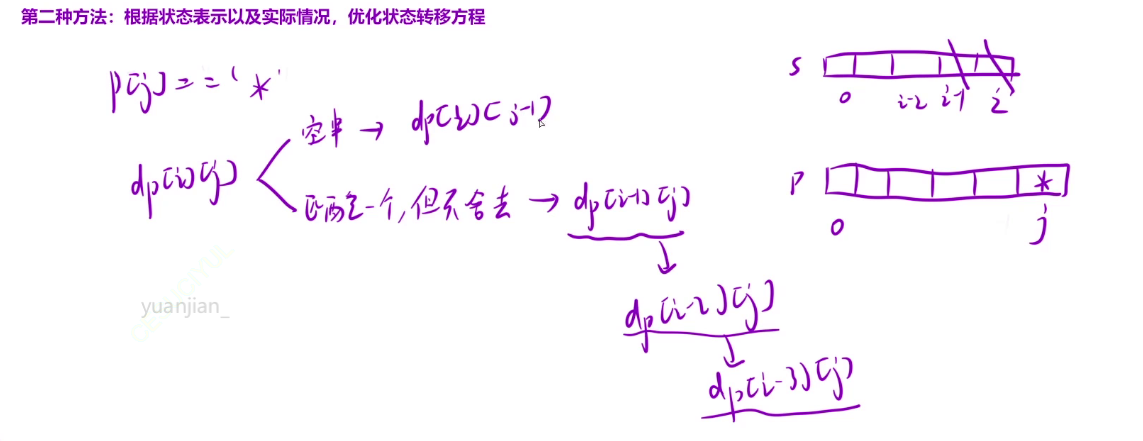 第二种方法：根据状态表示以及实际情况，优化状态转移方程
p[j] == '*'
空串 → dp[i][j-1]
dp[i][j]
匹配一个，但不舍去 → dp[i-1][j]
dp[i-2][j]
dp[i-3][j]
s
0 i-2 i-1 i
p *
0 j
yuanjian_